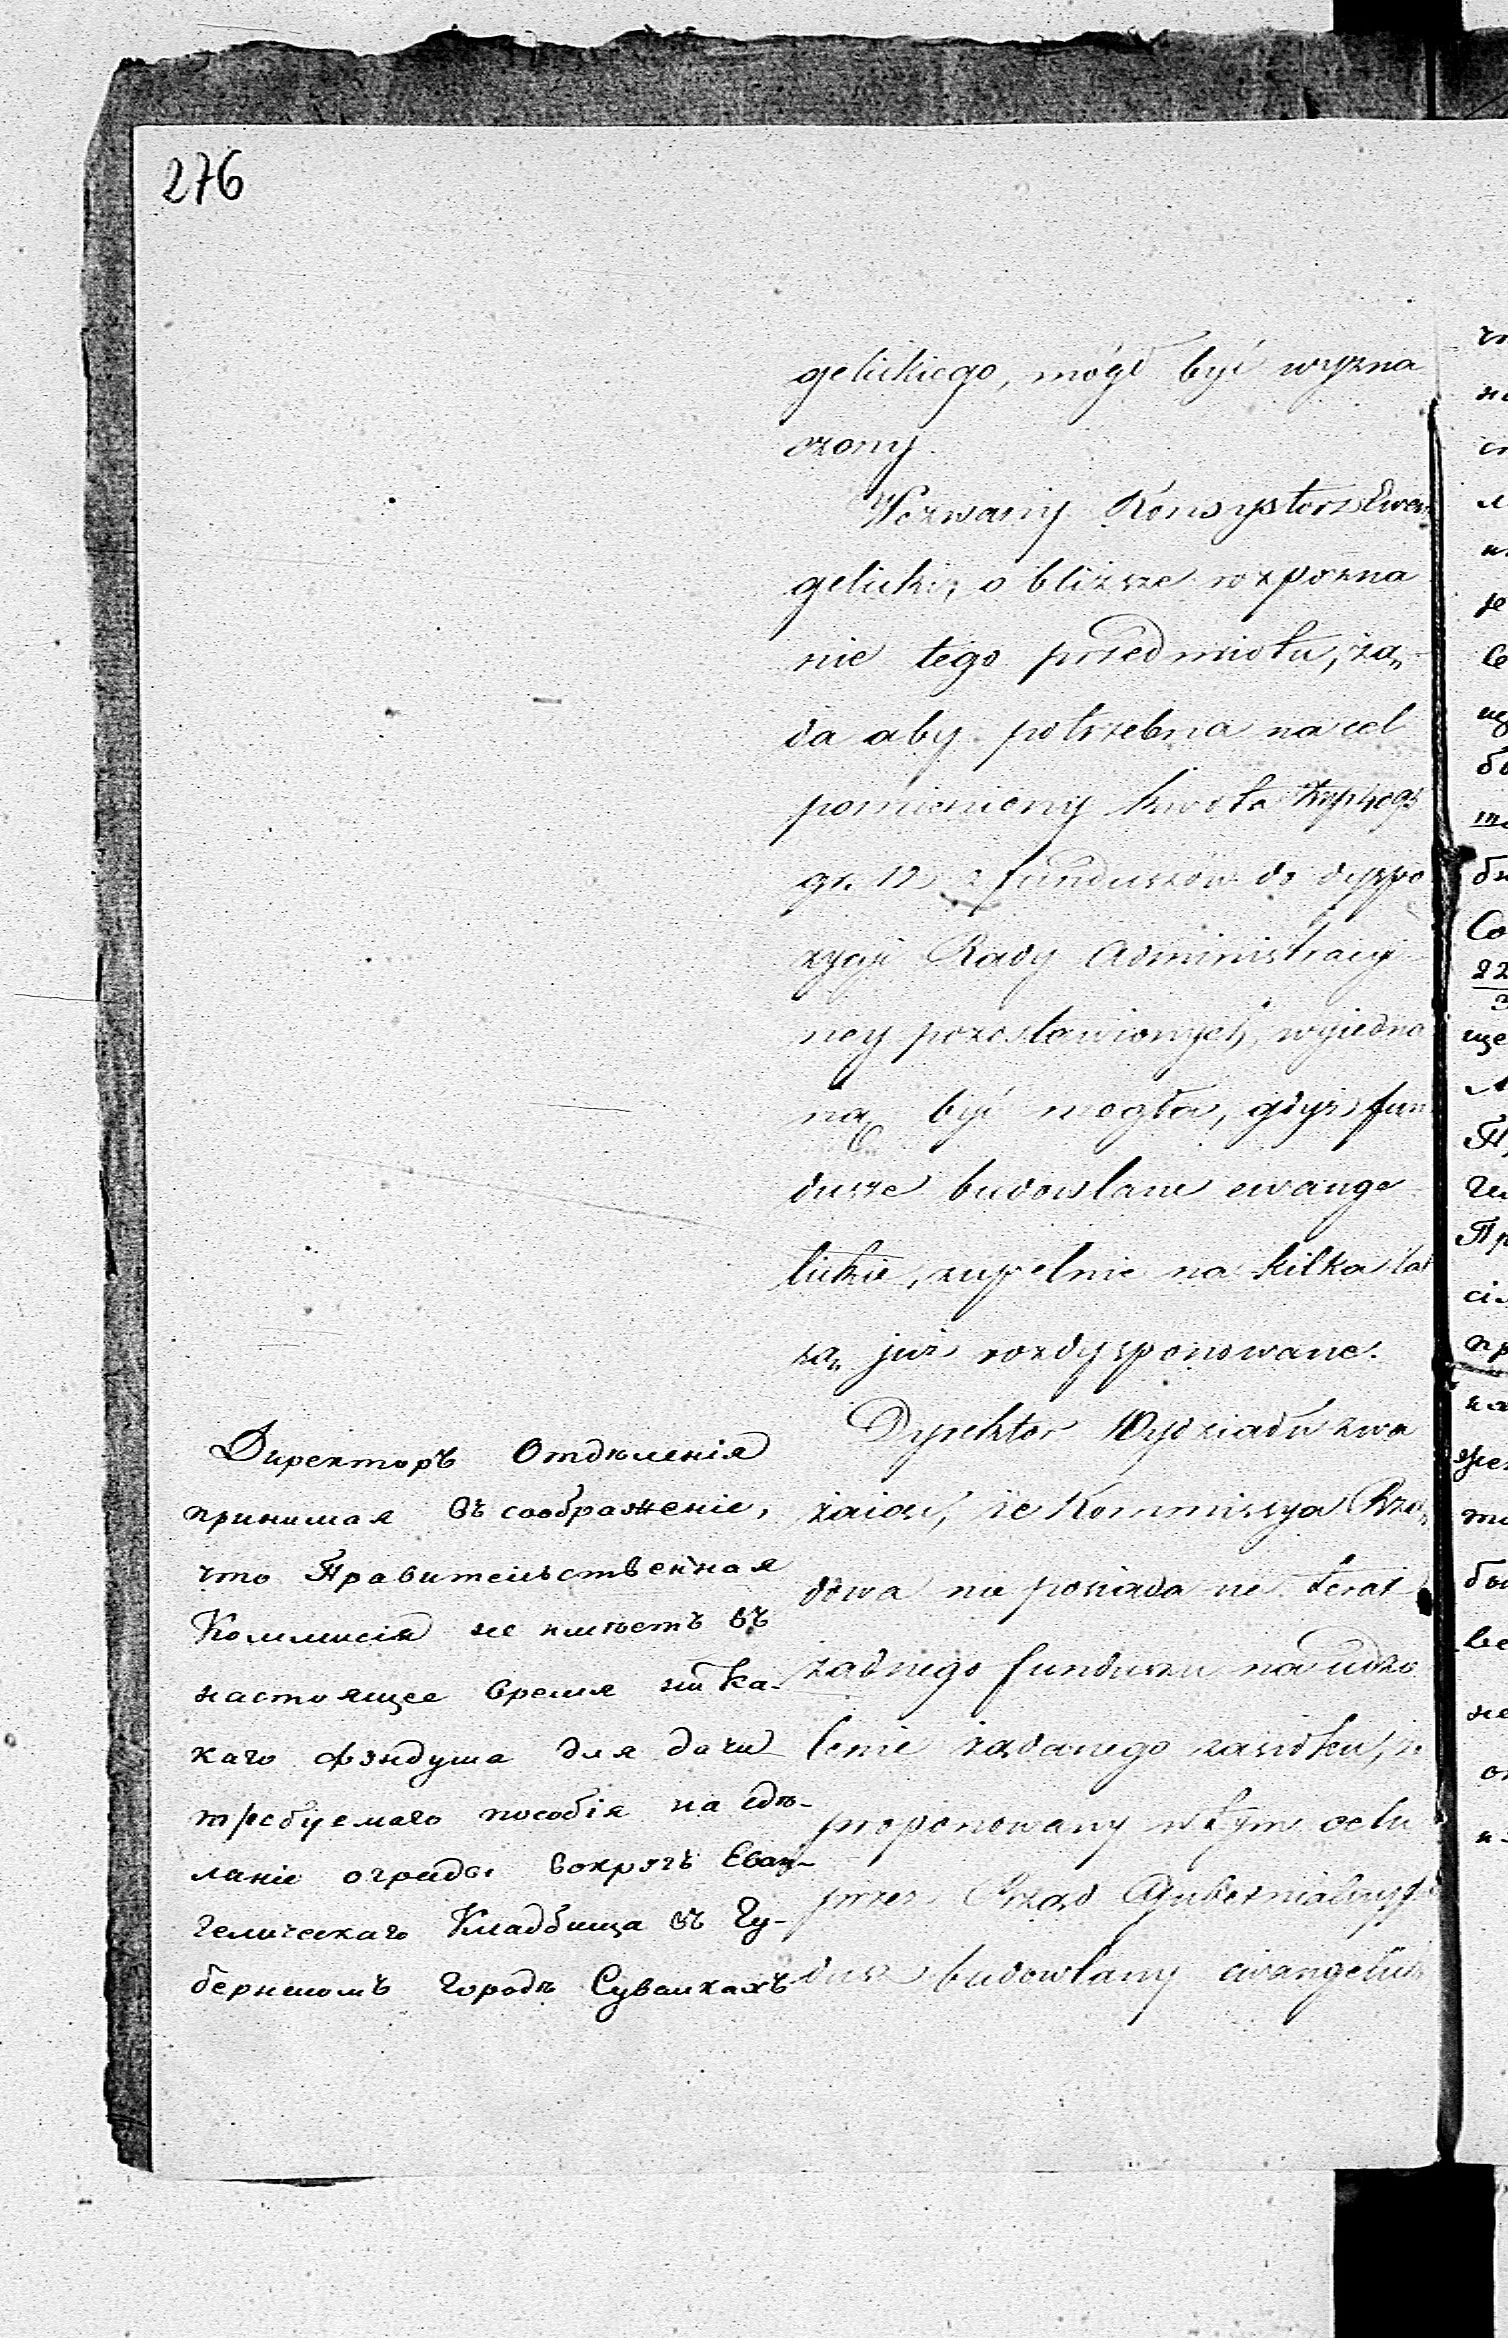 276
gelickiego, mógł być wyzna
czony.
Wezwany Konsystorz Ewan
gelicki, o bliższe rozpozna
nie tego przedmiotu, żą
da aby potrzebna na cel
pomieniony kwota
gr. 12 z funduszów do dyspo
zycyi Rady Administracyj
ney pozostawionych, wyiedna
ną być mogła, gdyż fun
dusze budowlane ewange
lickie, zupełnie na kilka lat
są już rozdysponowane.
Dyrektor Wydziału zwa
żaiąc, że Kommissya Rzą
dowa nie posiada na teraz
żadnego funduszu na udzie
lenie żądanego zasiłku,
proponowany w tym celu
przez Rząd Gubernialny
dusz budowlany ewangelick
Директоръ Отдѣленія
принимая въ соображеніе,
что Правительственная
Коммисія не имѣетъ въ
настоящее время ника-
каго фэндуша для дачи
требуемаго пособія на сдѣ-
ланіе ограды вокругъ Еван-
гелическаго Кладбища въ Гу-
бернскомъ городѣ Сувалкахъ